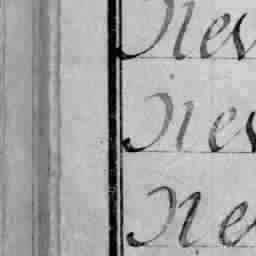 Nev
Nev
Ne